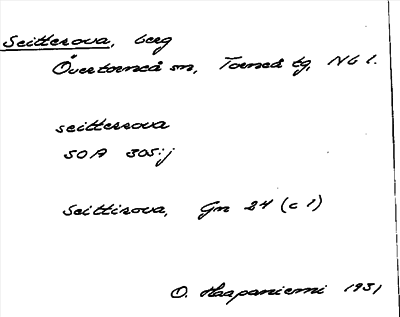 Seitterova, berg
Övertorneå sn, Torneå tg, Nb l.
seitterrova
SOA 305:j
Seittirova, Gm 24 (c 1)
O. Haapaniemi 1931